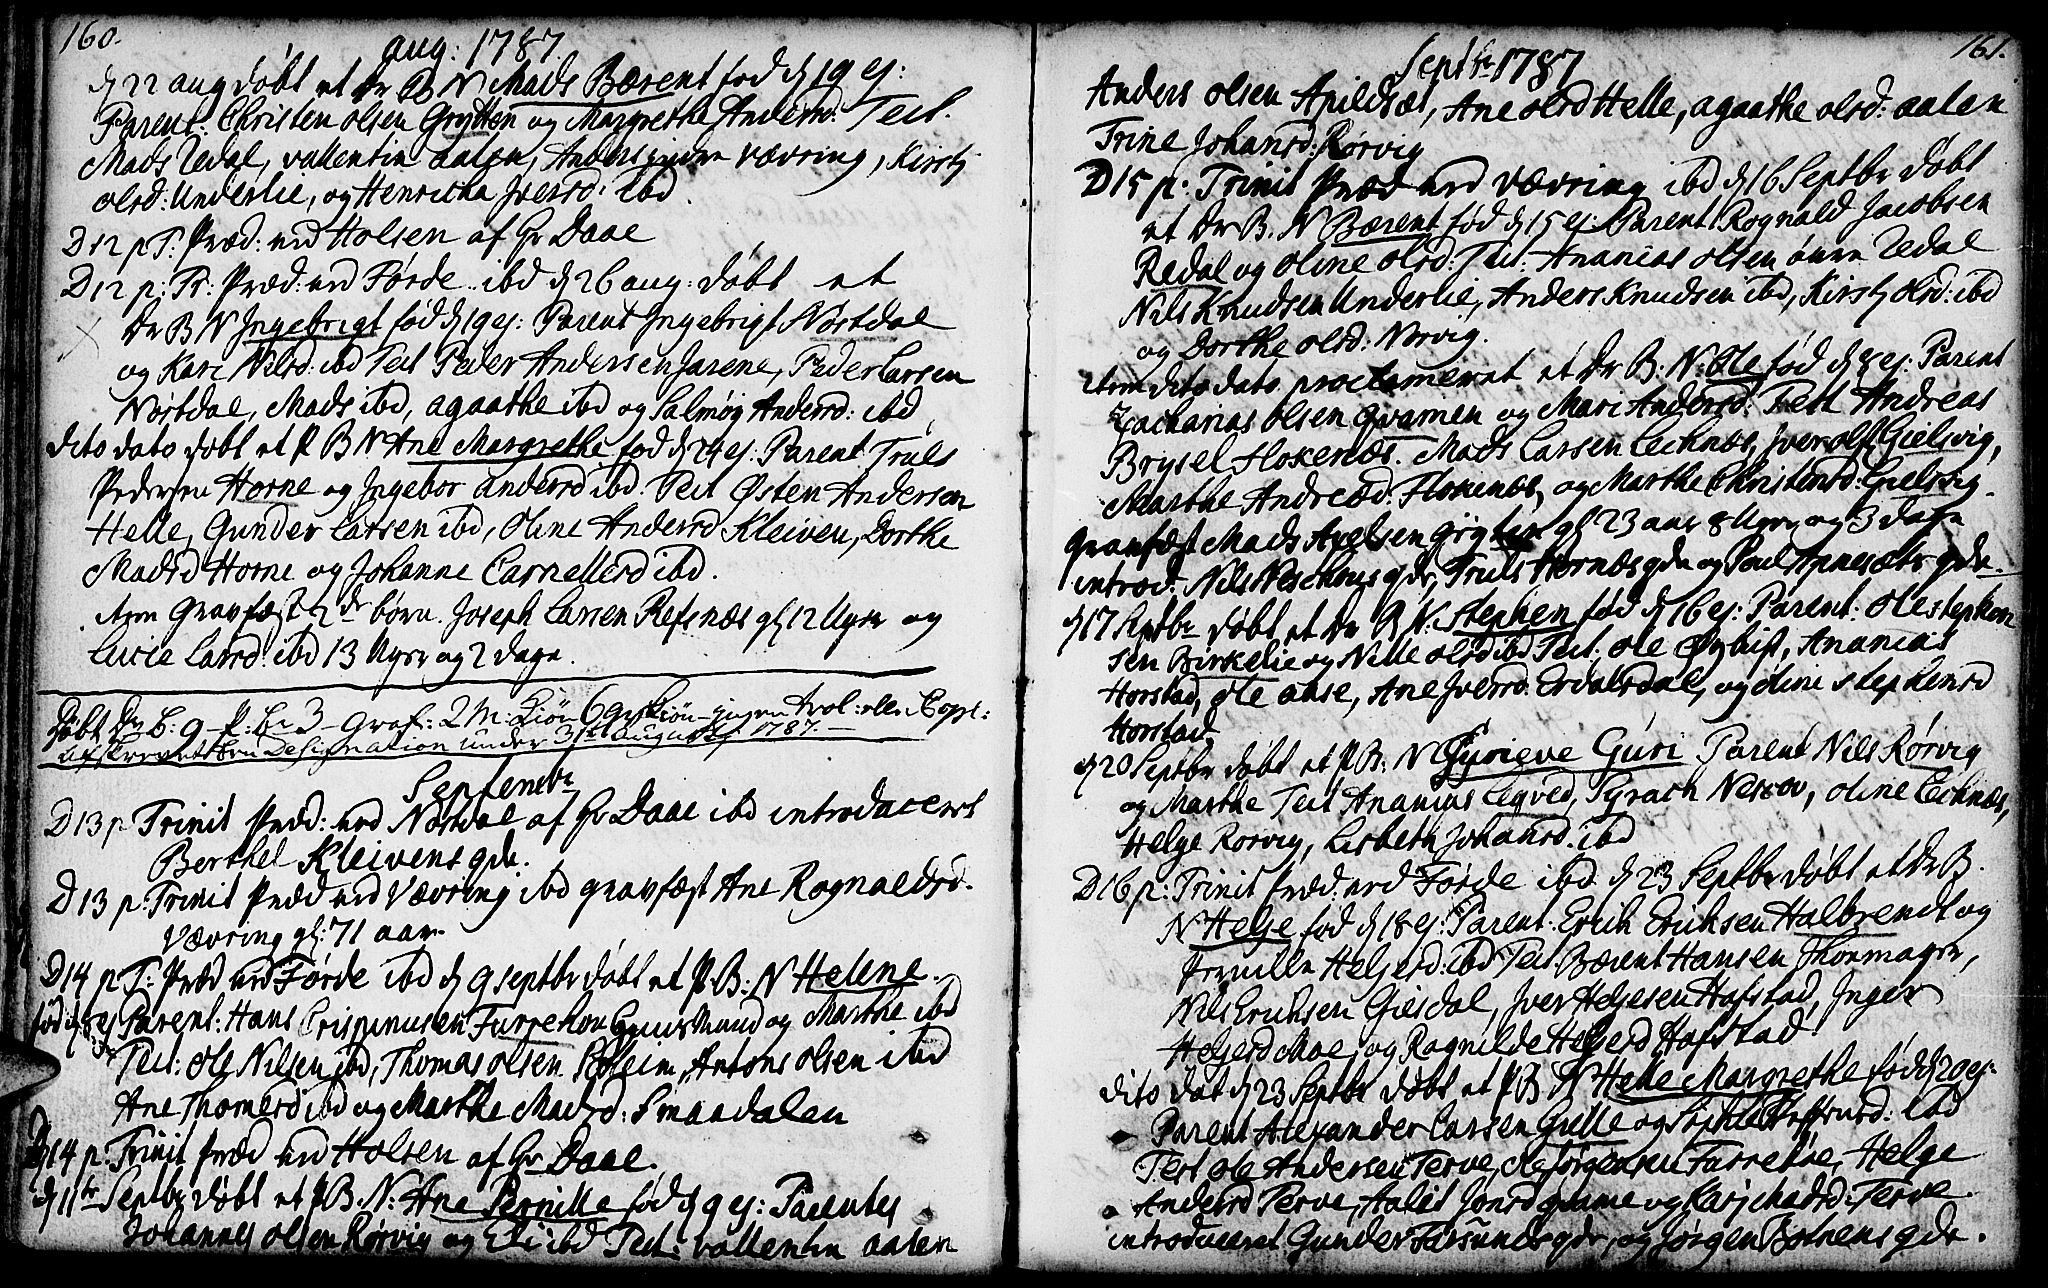 160.
aug: 1787.
d 22 aug døbt et Dr B N Mads Bærent fød d 19 ej:
Parent: Christen olsen Grytten og Margrethe Andersd: Test.
Mads Zedal, vallentin aalen, Anders Værring, Kirst
olsd: Underlie, og Henricha Jversd: ibd.
D 12 p T: Præd: ved Holsen af Hr Daae
D 12 p: Tr: Præd: ved Førde. ibd d 26 aug: døbt et
Dr B N Ingebrigt fød d 19 ej: Parent Ingebrigt Nøstdal
og Kari Nilsd: ibd Test Peder Andersen Farene, Peder Larsen
Nøstdal, Mads ibd, agaathe ibd og Salmøg Andersd: ibd
dito dato døbt et P B N Ane Margrethe fød d 24 ej: Parent Truls
Pedersen Horne og Ingebor andersd ibd. Test Østen Andersen
Helle, Gunder Larsen ibd, Oline Andersd Kleiven, Dorthe
Madsd Horne og Johanne Carnellesd ibd.
item Gravfæst 2de børn. Joseph Larsen Refsnæs gl 12 Uger og
Lucie Larsd: ibd 13 Uger og 2 dage.
Døbt Dr B: 9 – P: B: 3 – Graf: 2 M: Kiøn 6 Qv: Kiøn – ingen Trol: eller Copl:
afskrevet den Designation under 31 august 1787. –
Septembr
D 13 p Trinit Præd: ved Nøstdal af Hr Daae ibd introduceret
Berthel Kleivens qde.
D 13 p: Trinit Præd ved Værring ibd gravfæst Ane Rognaldsd.
Værring gl: 71 aar
D 14 p T: Præd ved Førde ibd d 9 septbr døbt et P: B: N Helene.
fød d 8 ej Parent: Hans Crispinusen Furrehov og Marthe ibd
Test: ole Nilsen ibd, Thomas olsen Roleim, Antons olsen ibd
Ane Thomesd ibd og Marthe Madsd: Smaadalen
D 14 p: Trinit præd ved Holsen af Hr Daae.
d 11te Septbr døbt et P B. N: Ane Pernille fød d 9 ej: Parentes
Johannes olsen Rørvig og Eli ibd Test: vallentin aalen
161.
Septbr 1787
Anders olsen Apildsæt, Ane olsd Helle, agaathe olsd: aalen
Trine Johansd: Rørvig
D 15 p: Trinit Præd ved Værring ibd d 16 Septbr døbt
et Dr B. N Bærent fød d 15 ej: Parent Rognald Jacobsen
Redal og oline olsd: Test: Ananias olsen øvre Zedal
Nils Knudsen Underlie, Anders Knudsen ibd, Kirst olsd: ibd
og Dorthe olsd: Norvig.
item dito dato proclameret et Dr B: N: Ole fød d 8 ej: Parent
Zacharias olsen Qvamen og Mari Andersd: Test Andreas
Brysel Flokenæs. Mads Larsen Lechnæs, Jver ols Gielsvig,
Marthe Andreæd: Flokenæs, og Marthe Christensd: Gielsvig.
Gravfæst Mads Axelsen gl 23 aar 8 Uger og 3 dage
introd: Nils Neschous qde, Truls Hornes qde og Poul Apnesæts qde
d 17 Septbr døbt et Dr B N: Stephen fød d 16 ej: Parent: Ole stephen
sen Birkelie og Nille olsd ibd Test. ole Øybust, Ananias
Horstad, ole aase, Ane Jversd Erdalsdal, og oline stephensd
Horstad
d 20 Septbr døbt et P B: N Gyrieve Guri Parent Nils Rørvig
og Marthe Test Ananias Legved, Pyrach Nescov, oline Lechnæs,
Helge Rorvig, Lisbeth Johansd. ibd
D 16 p: Trinit Præd. ved Førde ibd d 23 Septbr døbt et Dr B.
N Helge fød d 18 ej: Parent: Erich Erichsen Halbrendt og
Pernille Helgesd: ibd Test Bærent Hansen Thonmager,
Nils Erichsen Giesdal, Jver Helgesen Hafstad, Inger
Helgesd Moe, og Ragnilde Helgesd Hafstad
dito dat d 23 Septbr døbt et P B N Helle Margrethe fød d 20 ej:
Parent Alexander Larsen Gielle og Sophie Steffensd: ibd
Test ole Andersen Terve, ole Jørgensen Furrehøe, Helge
Andersd Terve, Aalet Jonsd gamme og Kari Madsd: Terve.
introduceret Gunder Farsunds qde, og Jørgen Botnens qde.